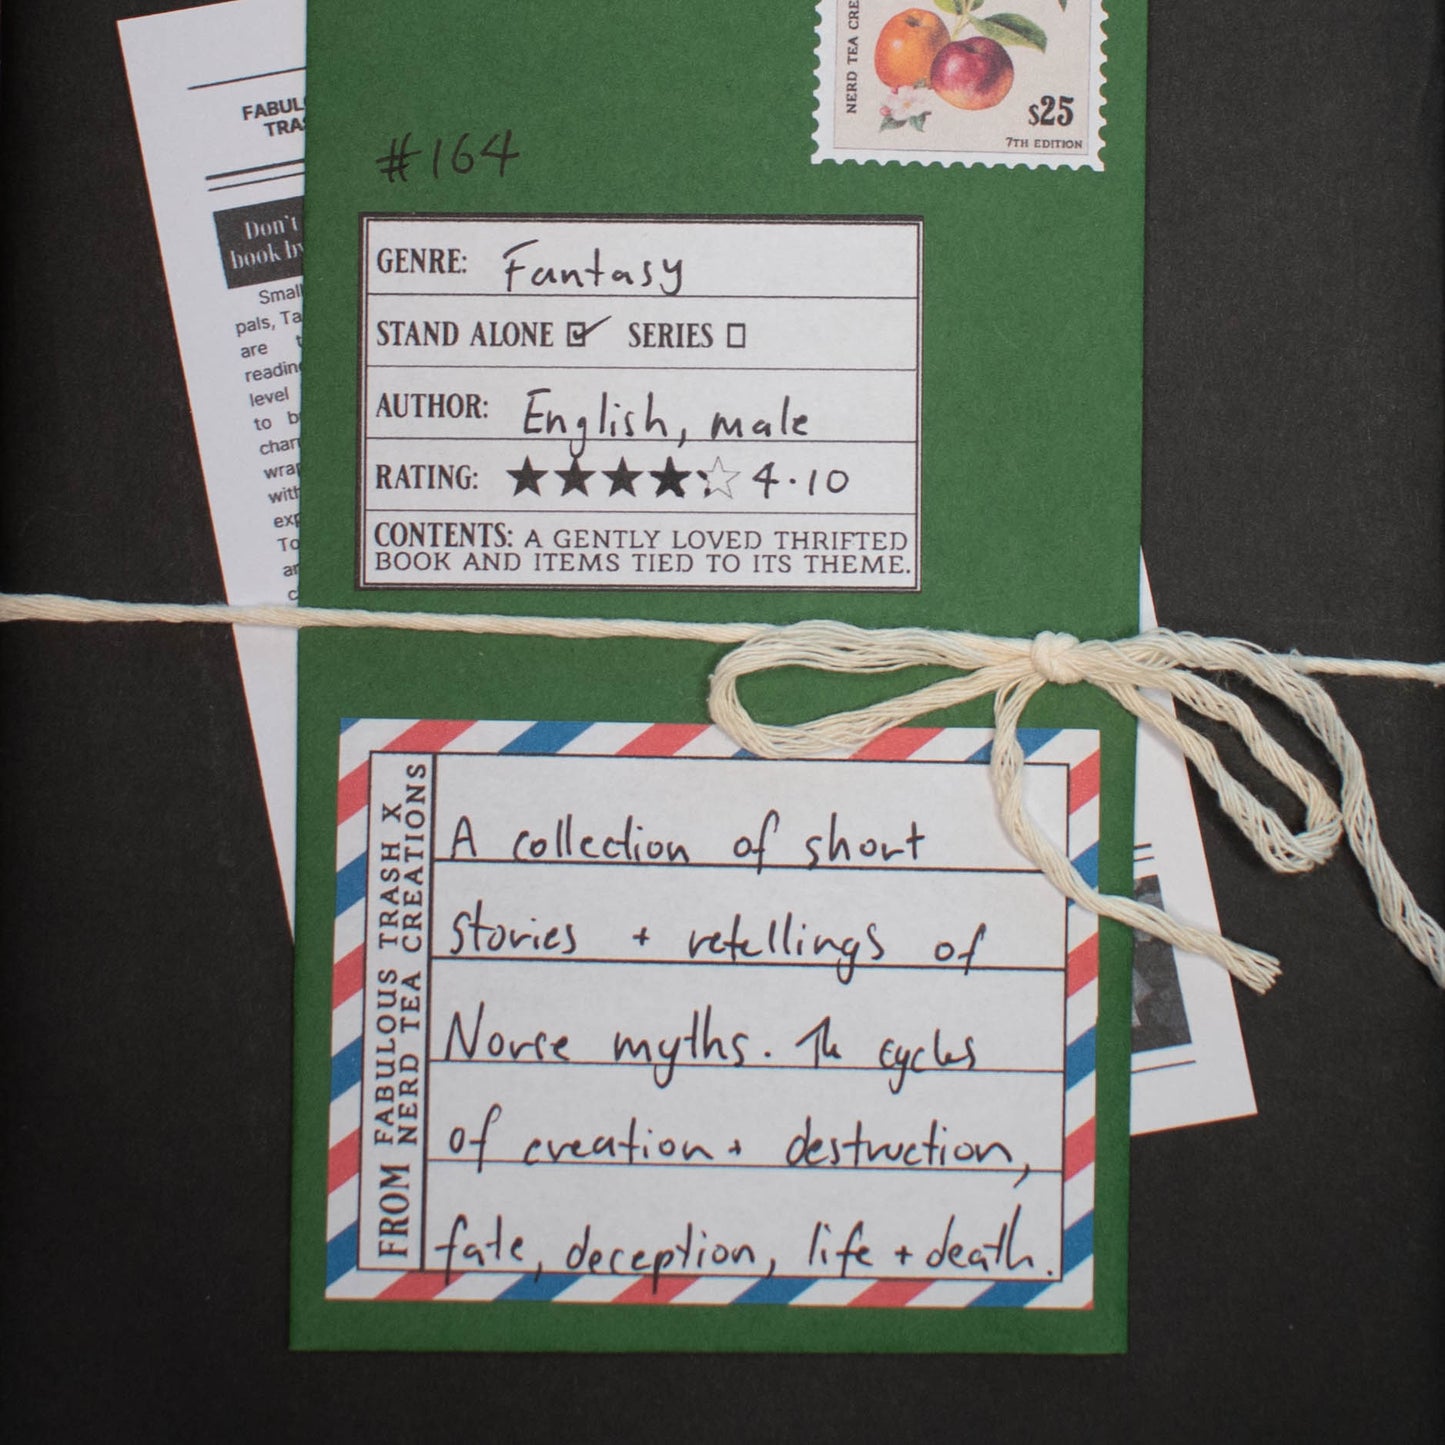 NERD TEA CRE
$25
7TH EDITION
FABULO
TRA
#164
Don't
book by
Small
pals, Ta
are t
readin
level
to b
char
wrap
with
exp
To
ar
c
GENRE: Fantasy
STAND ALONE ☑ SERIES ☐
AUTHOR: English, male
RATING: ★★★★☆ 4.10
CONTENTS: A GENTLY LOVED THRIFTED
BOOK AND ITEMS TIED TO ITS THEME.
FROM FABULOUS TRASH X
NERD TEA CREATIONS
A collection of short
stories + retellings of
Norse myths. The cycles
of creation + destruction,
fate, deception, life + death.